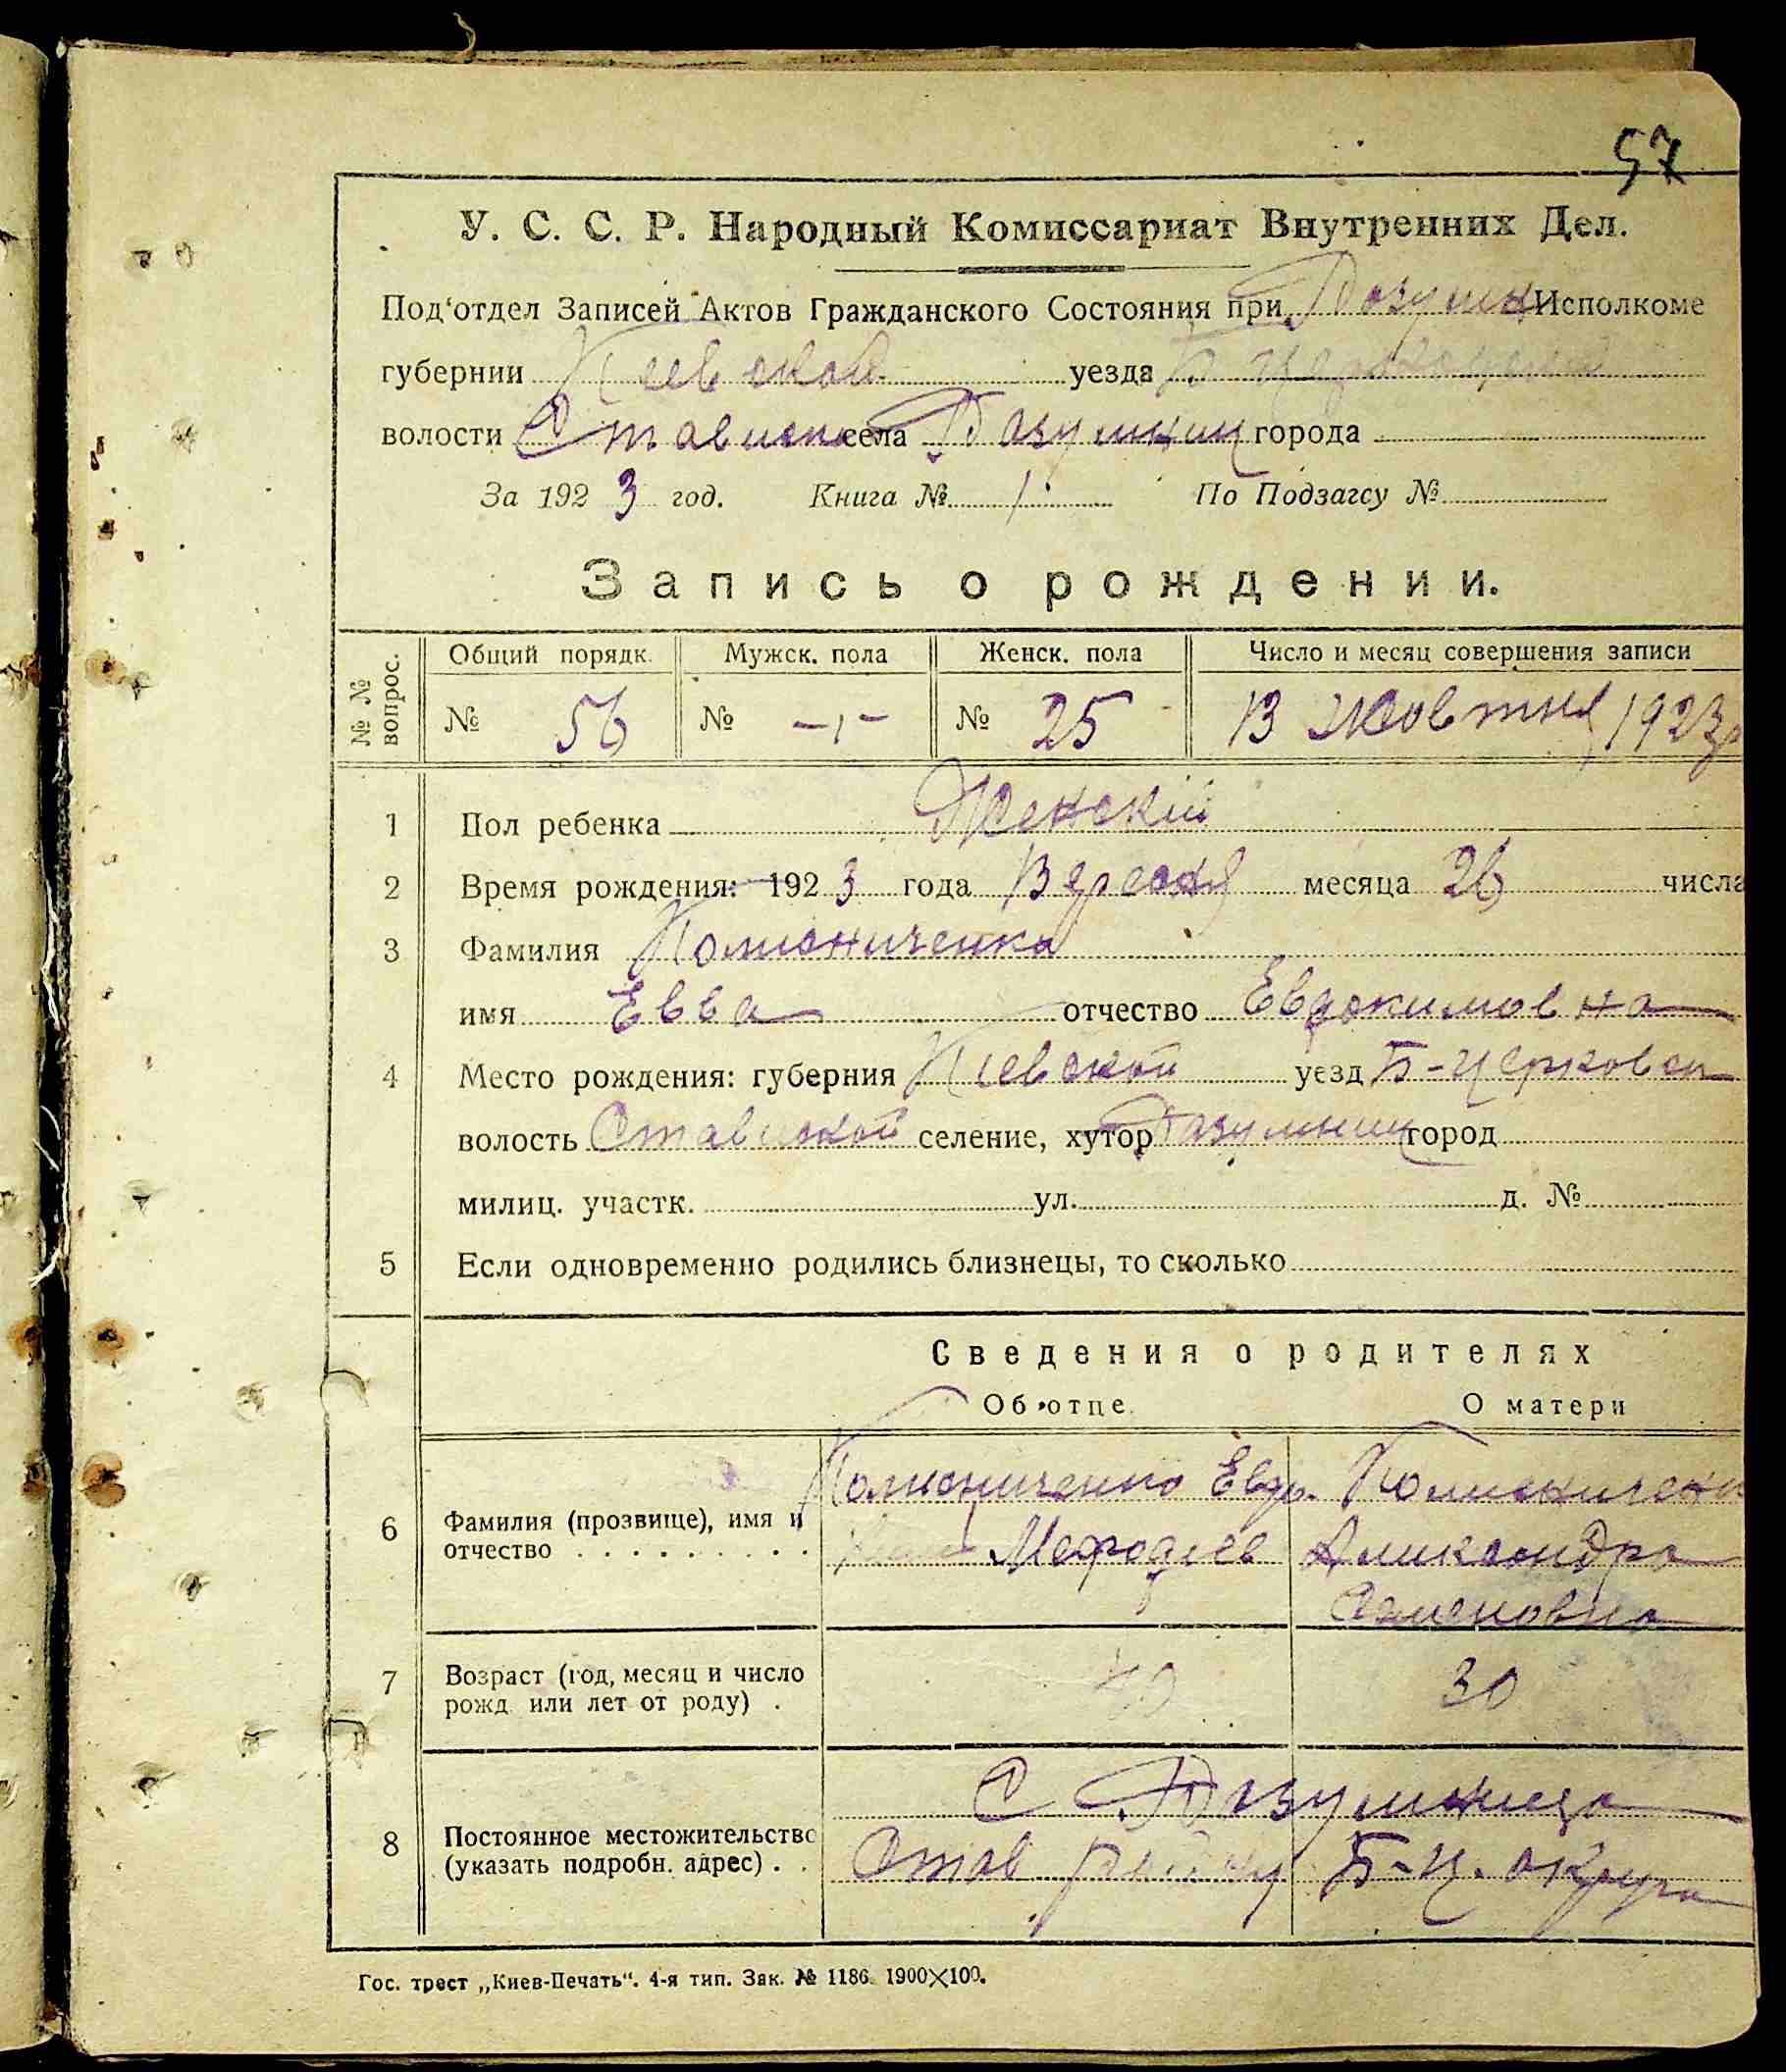 57
У. С. С. Р. Народный Комиссариат Внутренних Дел.
Под‘отдел Записей Актов Гражданского Состояния при Розумн Исполкоме
губернии Киевской уезда Б Церковской
волости Стависк села Розумниц города
За 1923 год. Книга № 1 По Подзагсу №
Запись о рождении.
№ № вопрос. Общий порядк. Мужск. пола Женск. пола Число и месяц совершения записи
№ 56 № -"- № 25 13 жовтня 1923р
1 Пол ребенка Женский
2 Время рождения: 1923 года Вересня месяца 26 числа
3 Фамилия
имя Евва отчество Евдокимовна
4 Место рождения: губерния Киевской уезд Б-Церковск
волость Ставиской селение, хутор Розумниц город
милиц. участк. ул. д. №
5 Если одновременно родились близнецы, то сколько
Сведения о родителях
Об отце. О матери
6 Фамилия (прозвище), имя и отчество Евдо-
Мефодиев Александра
Семеновна
7 Возраст (год, месяц и число рожд или лет от роду) . 40 30
8 Постоянное местожительство (указать подробн. адрес) . . С Розумниця
Став району Б-Ц. округа
Гос. трест „Киев-Печать“. 4-я тип. Зак. № 1186. 1900×100.